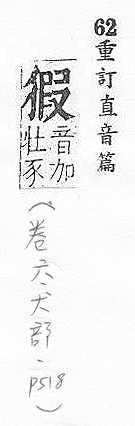 62重訂直音篇
猳
音加
壮豕
(卷六、犬部、P518)